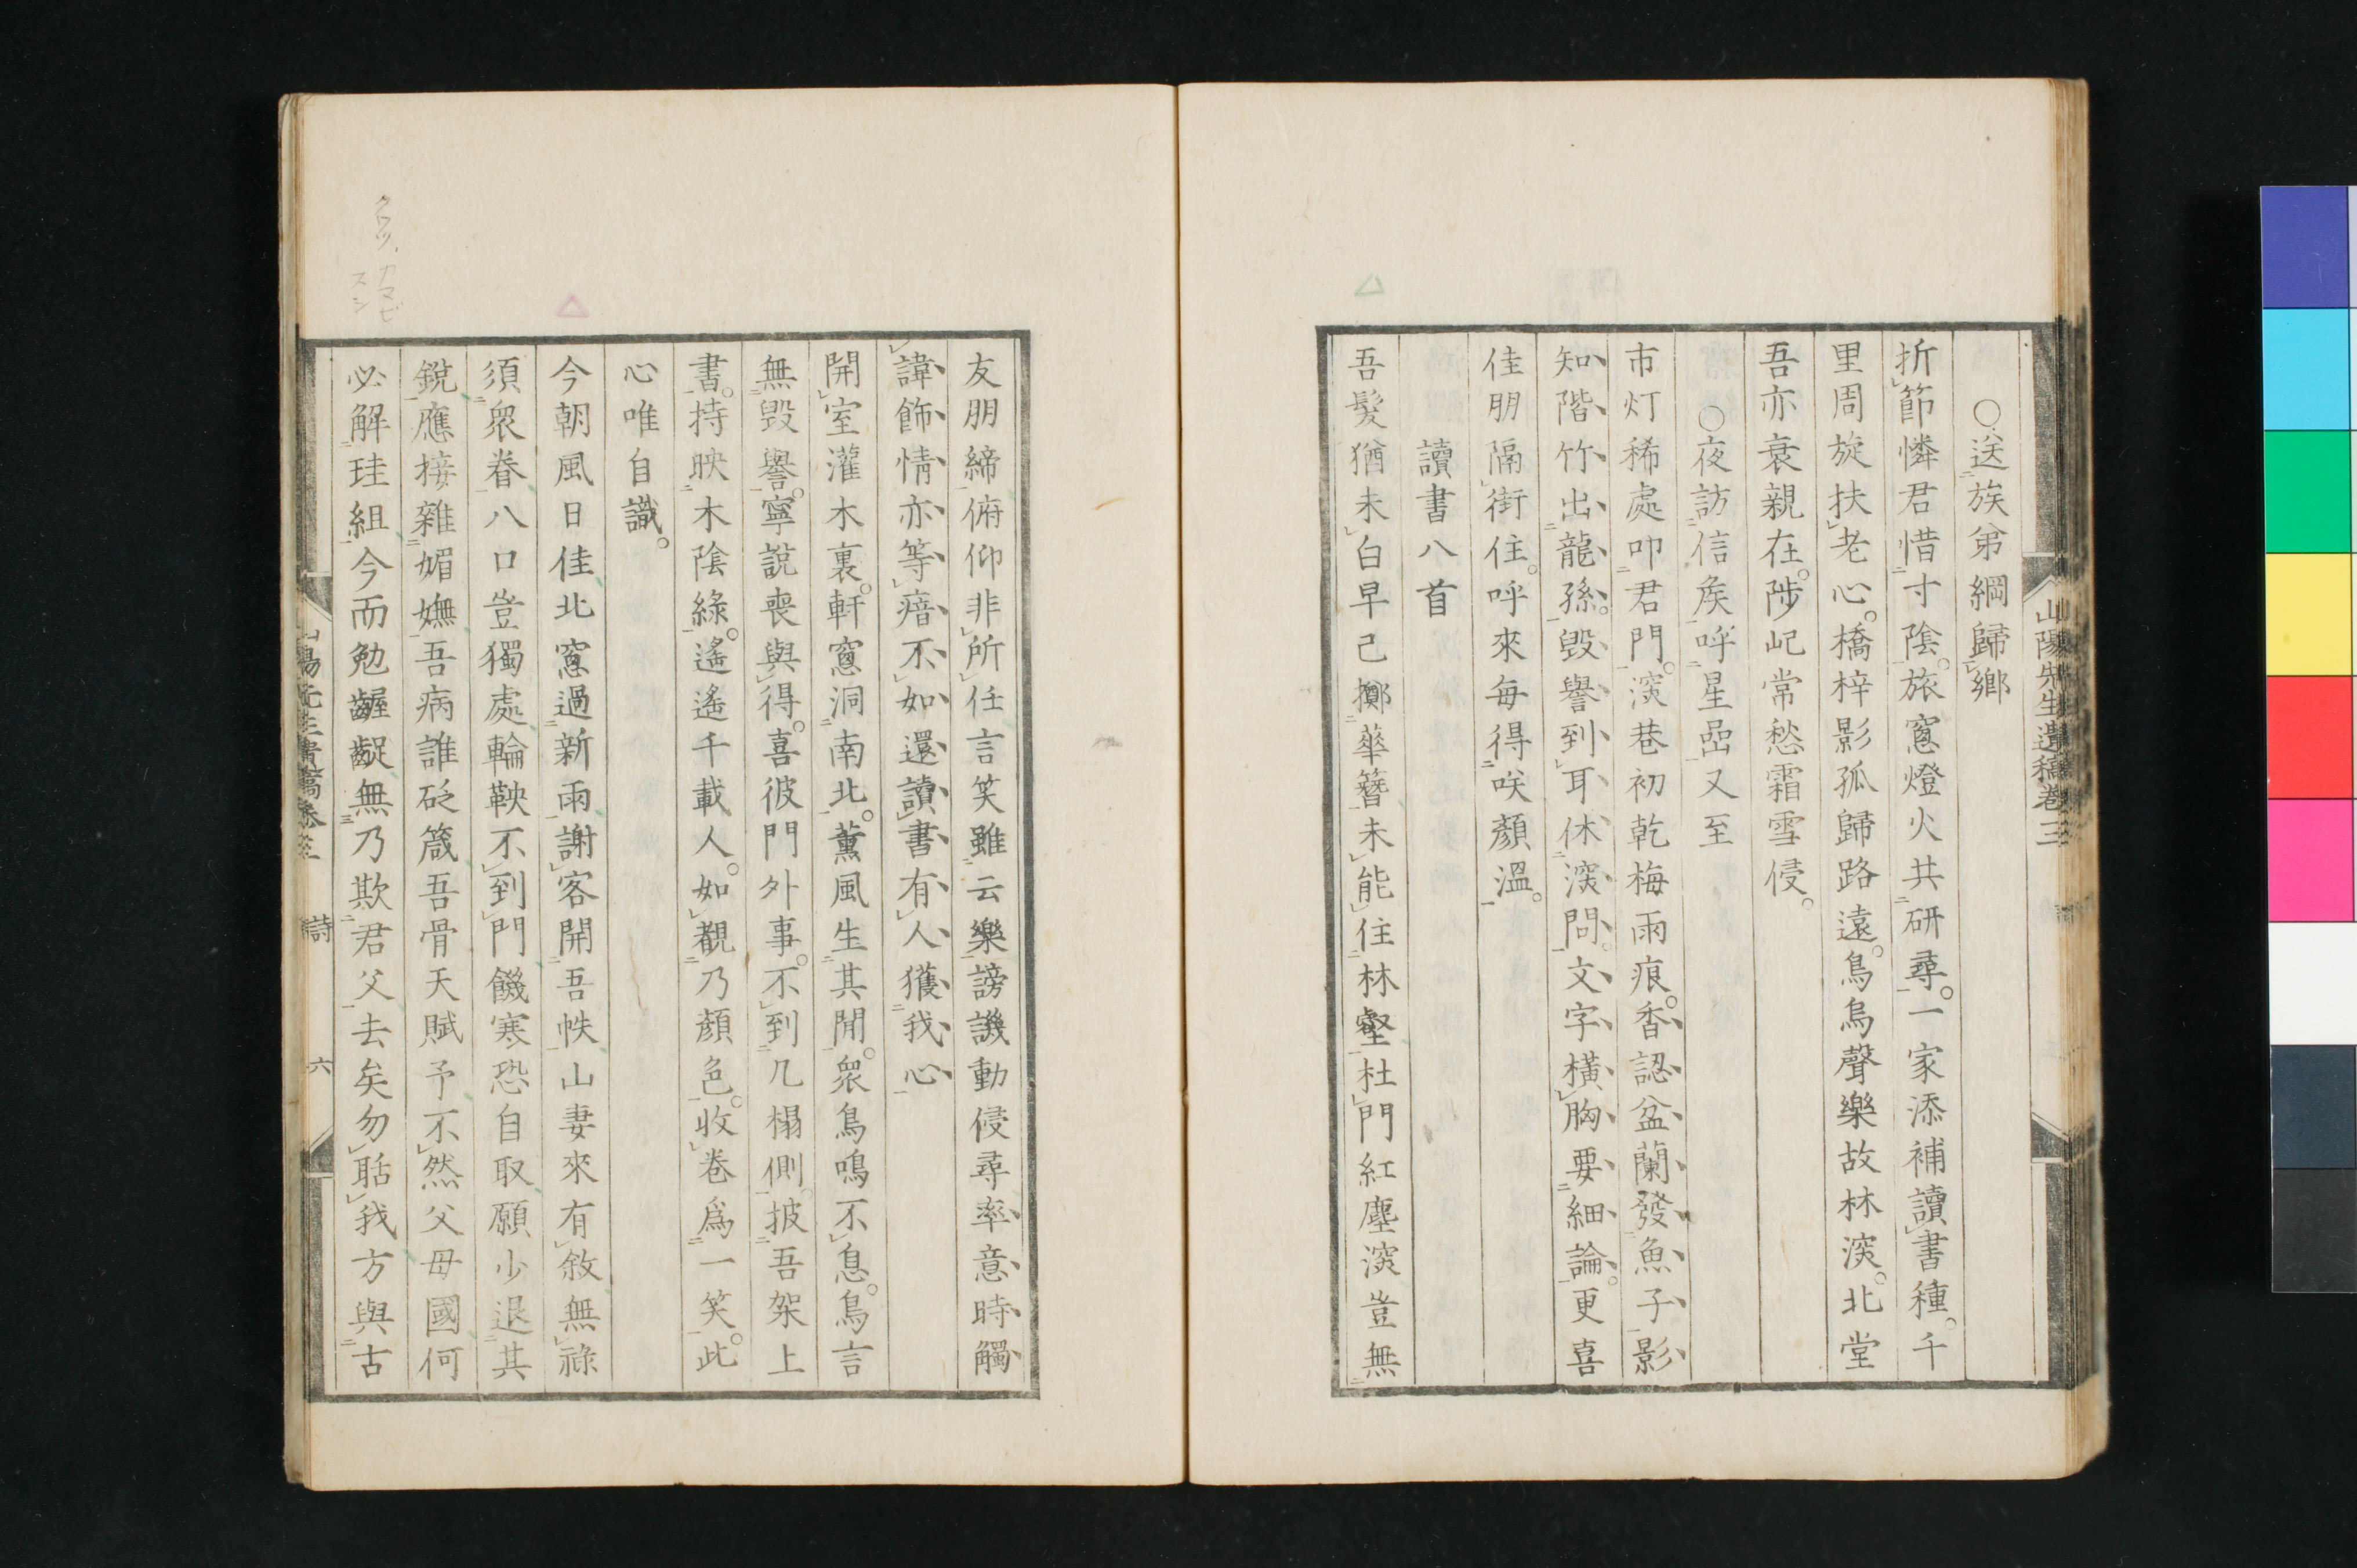 山陽先生遺稿卷三
○送族弟綱歸鄉
折節憐君惜寸陰。旅窻燈火共研尋。一家添補讀書種。千
里周旋扶老心。橋梓影孤歸路遠。鳥烏聲樂故林深。北堂
吾亦衰親在。陟屺常愁霜雪侵。
○夜訪信矦呼星嵒又至
市灯稀處叩君門。深巷初乾梅雨痕。香認盆蘭發魚子影
知階竹出龍孫。毀譽到耳休深問。文字橫胸要細論。更喜
佳朋隔街住。呼來每得咲顏溫。
讀書八首
吾髮猶未白早已擲華簪未能住林壑杜門紅塵深豈無
友朋締俯仰非所任言笑雖云樂謗譏動侵尋率意時觸
諱飾情亦等瘖不如還讀書有人獲我心
開室灌木裏。軒窻洞南北。薰風生其間。衆鳥鳴不息。鳥言
無毀譽。寧說喪與得。喜彼門外事。不到几榻側。披吾架上
書。持映木陰綠。遙遙千載人。如覩乃顏色。收卷爲一笑。此
心唯自識。
今朝風日佳北窻過新雨謝客開吾帙山妻來有敘無祿
須衆眷八口豈獨處輪鞅不到門饑寒恐自取願少退其
銳應接雜媚嫵吾病誰砭箴吾骨天賦予不然父母國何
必解珪組今而勉齷齪無乃欺君父去矣勿聒我方與古
詩
六